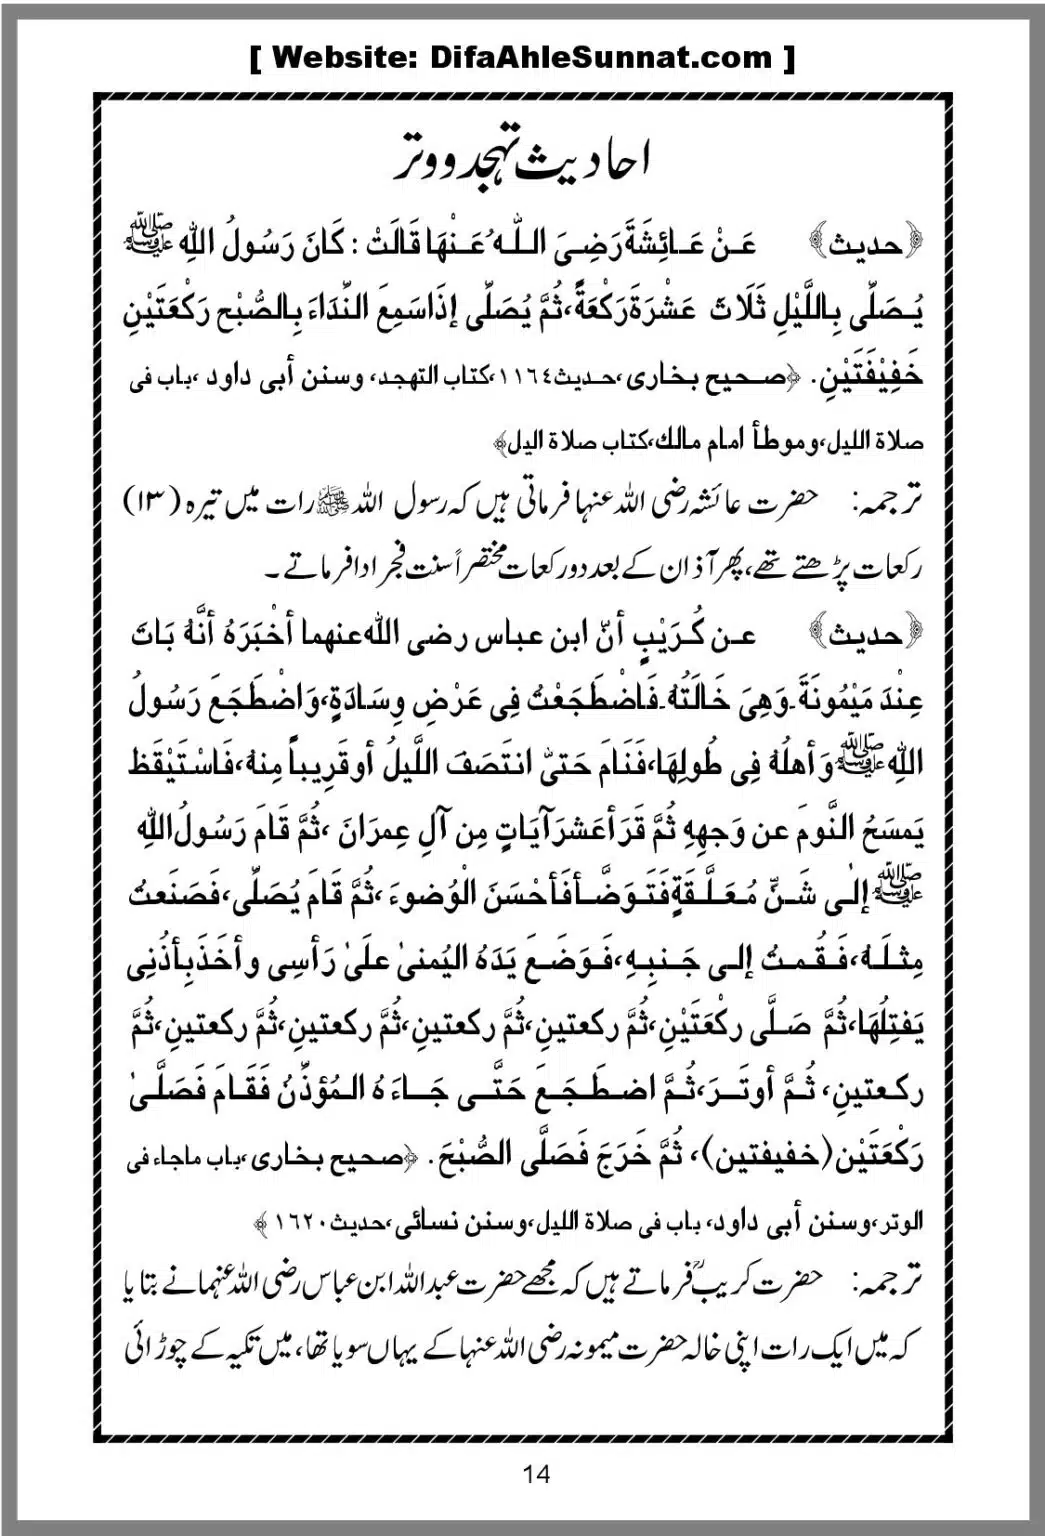 [ Website: DifaAhleSunnat.com ]
احادیث تہجد و وتر
﴿حدیث﴾ عَنْ عَائِشَةَ رَضِیَ اللّٰہُ عَنْہَا قَالَتْ : کَانَ رَسُولُ اللّٰہِ ﷺ
یُصَلِّی بِاللَّیْلِ ثَلَاثَ عَشْرَةَ رَکْعَةً،ثُمَّ یُصَلِّی إذَاسَمِعَ النِّدَاءَ بِالصُّبْحِ رَکْعَتَیْنِ
خَفِیْفَتَیْنِ. ﴿صحیح بخاری،حدیث۱۱٦٤،کتاب التھجد، وسنن أبی داود ،باب فی
صلاة اللیل،وموطأ امام مالك،کتاب صلاة الیل﴾
ترجمہ: حضرت عائشہ رضی اللہ عنہا فرماتی ہیں کہ رسول اللہ ﷺ رات میں تیرہ (۱۳)
رکعات پڑھتے تھے، پھر آذان کے بعد دو رکعات مختصراً سنت فجر ادا فرماتے ۔
﴿حدیث﴾ عن کُرَیْبٍ أنّ ابن عباس رضی اللہ عنھما أخْبَرَہُ أنَّهُ بَاتَ
عِنْدَ مَیْمُونَةَ۔وَھِیَ خَالَتُهُ۔فَاضْطَجَعْتُ فِی عَرْضِ وِسَادَةٍ،وَاضْطَجَعَ رَسُولُ
اللّٰہِ ﷺ وَأھلُهُ فِی طُولِھَا،فَنَامَ حَتیّٰ انتَصَفَ اللَّیلُ أوقَرِیباً مِنهُ،فَاسْتَیْقَظَ
یَمسَحُ النَّومَ عن وَجھِهِ ثُمَّ قَرَأعَشرَآیَاتٍ مِن آلِ عِمرَانَ ،ثُمَّ قَامَ رَسُولُ اللّٰہِ
ﷺ إلٰی شَنٍّ مُعَلَّقَةٍ فَتَوَضَّأفَأحْسَنَ الْوُضوءَ ،ثُمَّ قَامَ یُصَلِّی،فَصَنَعتُ
مِثلَهُ،فَقُمتُ إلی جَنبِهِ،فَوَضَعَ یَدَہُ الیُمنیٰ علَیٰ رَأسِی وأخَذَبِأذُنِی
یَفتِلُھَا،ثُمَّ صَلَّی رکْعَتَیْنِ،ثُمَّ رکعتینِ،ثُمَّ رکعتینِ،ثُمَّ رکعتینِ،ثُمَّ رکعتینِ،ثُمَّ
رکعتینِ، ثُمَّ أوتَرَ،ثُمَّ اضطَجَعَ حَتَّی جَاءَہُ المُؤذِّنُ فَقَامَ فَصَلَّیٰ
رَکْعَتَیْنِ(خفیفتین)، ثُمَّ خَرَجَ فَصَلَّی الصُّبْحَ . ﴿صحیح بخاری،باب ماجاء فی
الوتر،وسنن أبی داود، باب فی صلاة اللیل،وسنن نسائی،حدیث۱٦۲۰﴾
ترجمہ: حضرت کریبؒ فرماتے ہیں کہ مجھے حضرت عبد اللہ ابن عباس رضی اللہ عنہما نے بتایا
کہ میں ایک رات اپنی خالہ حضرت میمونہ رضی اللہ عنہا کے یہاں سویا تھا، میں تکیہ کے چوڑائی
14